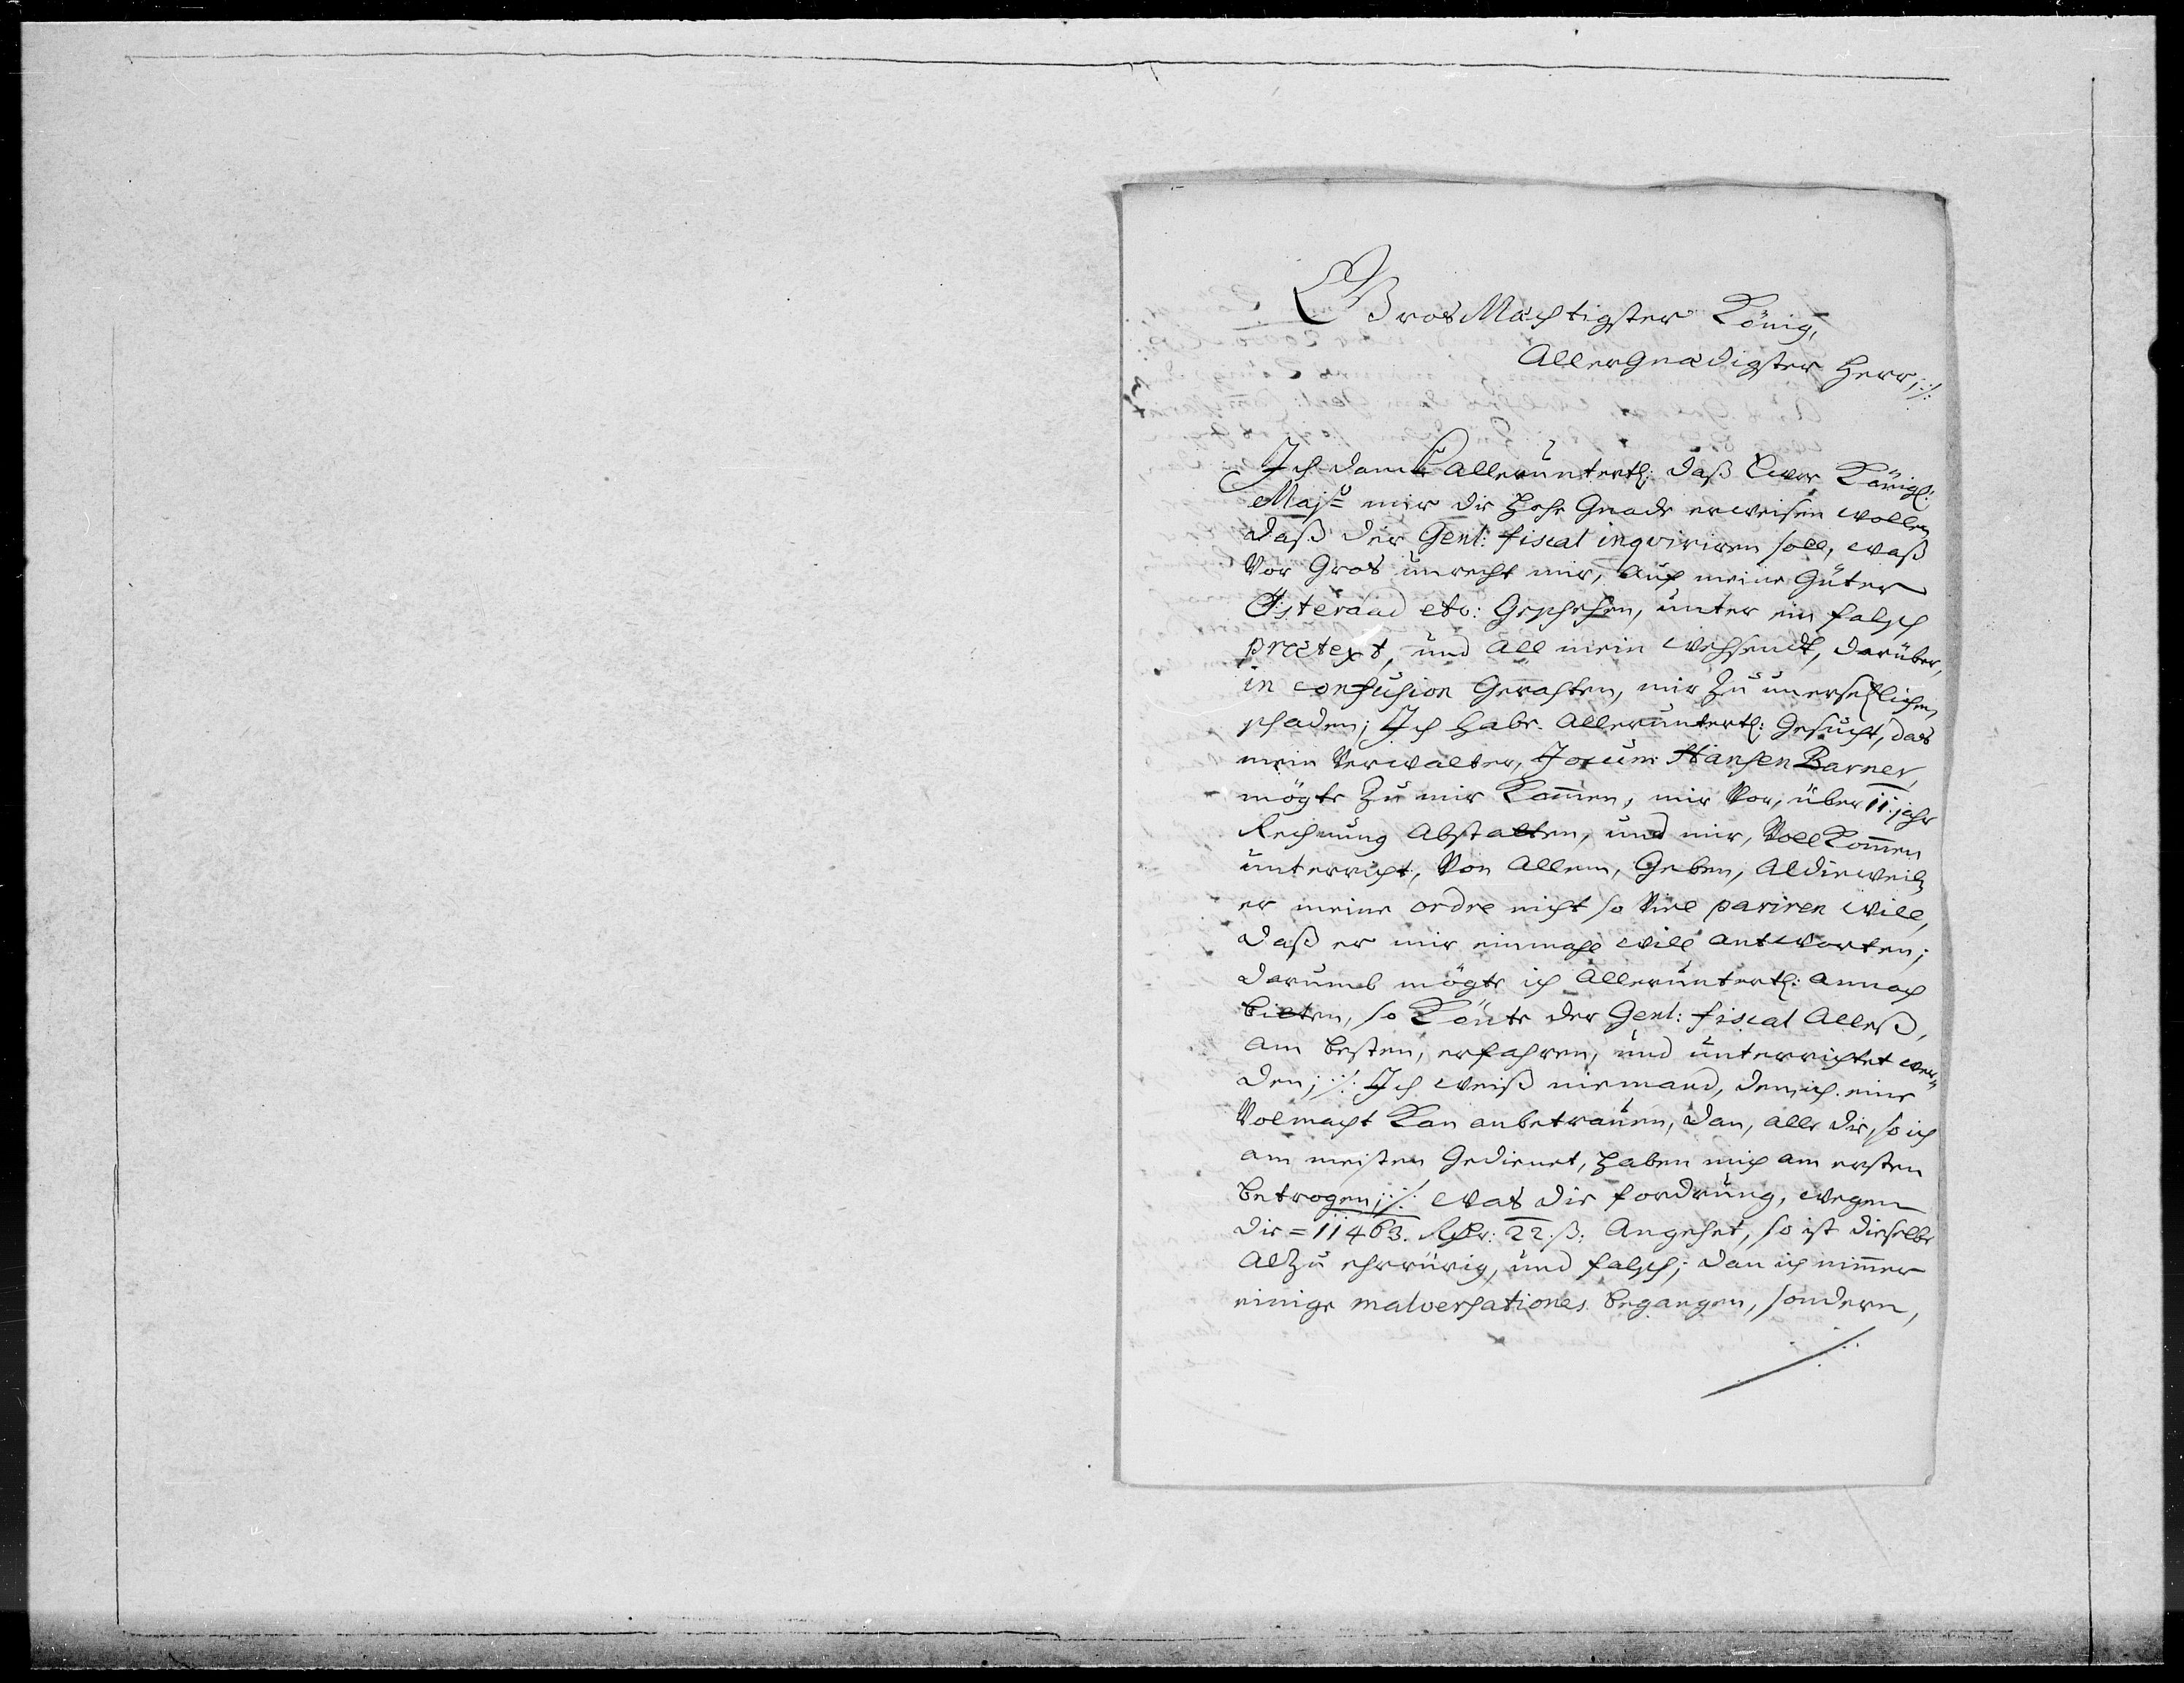 GrosMächtigster König,
Allergnädigster Herr;:/:
Ich danck alleruntertl: daß Ewer Königl:
Majst: mir die Hohe Gnade erweisen wollen
daß der Genl: fiscal inqviriren soll, waß
Vor Gros unrecht mir, Auf meine Güter
Österaad etc: Geschehen, unter ein falsch
prætext, und All mein wehsendt, darüber,
in confusion Gerahten, mir zu unersetzlichen
schaden; Ich Habe Alleruntertl: Gesucht, das
mein Verwalter, Jocum Hansen Barner,
mögte zu mir Kom̅en, mir Vor, über 11. jahr
Rechnung Abstatten, und mir, VollKom̅en
unterricht, Von Allem, Geben, Aldieweil,
er meine ordre nicht so Viel pariren will,
daß er mir einmahl will antworten;
darumb mögte ich Alleruntertl: annoch
bitten, so Könte der Genl: fiscal Alleß,
Am besten, erfahren, und unterrichtet wer=
den;:/: Ich weiß niemand, dem ich eine
Volmacht Kan anbetrauen, dan, alle die, so ich
am meisten Gedienet, Haben mich am ersten
betrogen;:/: Was die fordrung, wegen
die = 11463. Rthlr: 22. ß: Angehet, so ist dieselbe
Alzu ehrrürig, und falsch; dan ich nim̅er
einige malversationes begangen, sondern,